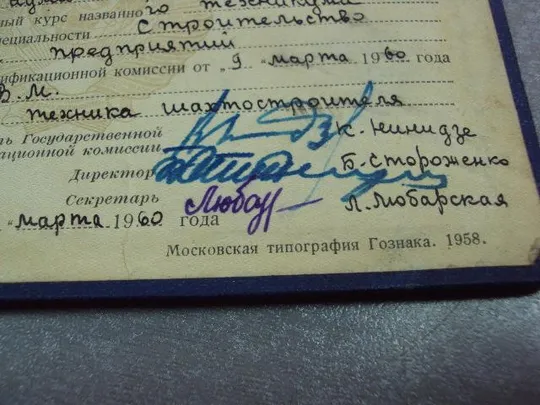 ный курс названного техникума
специальности Строительство
предприятий
ификационной комиссии от "9" марта 1960 года
В.М.
техника шахтостроителя
ль Государственной
ационной комиссии К. Нинидзе
Директор Б. Стороженко
Секретарь Любар Л. Любарская
"марта 1960 года
Московская типография Гознака. 1958.